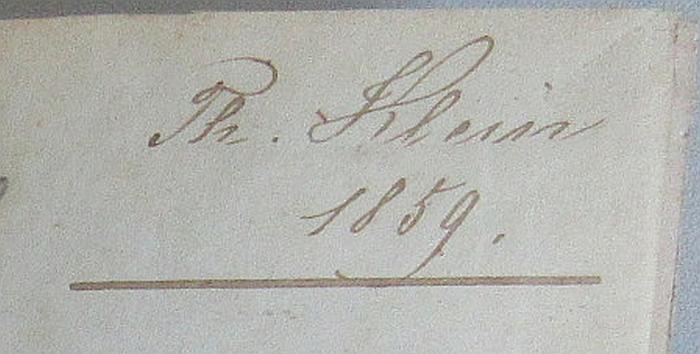 Th. Klein
1859.